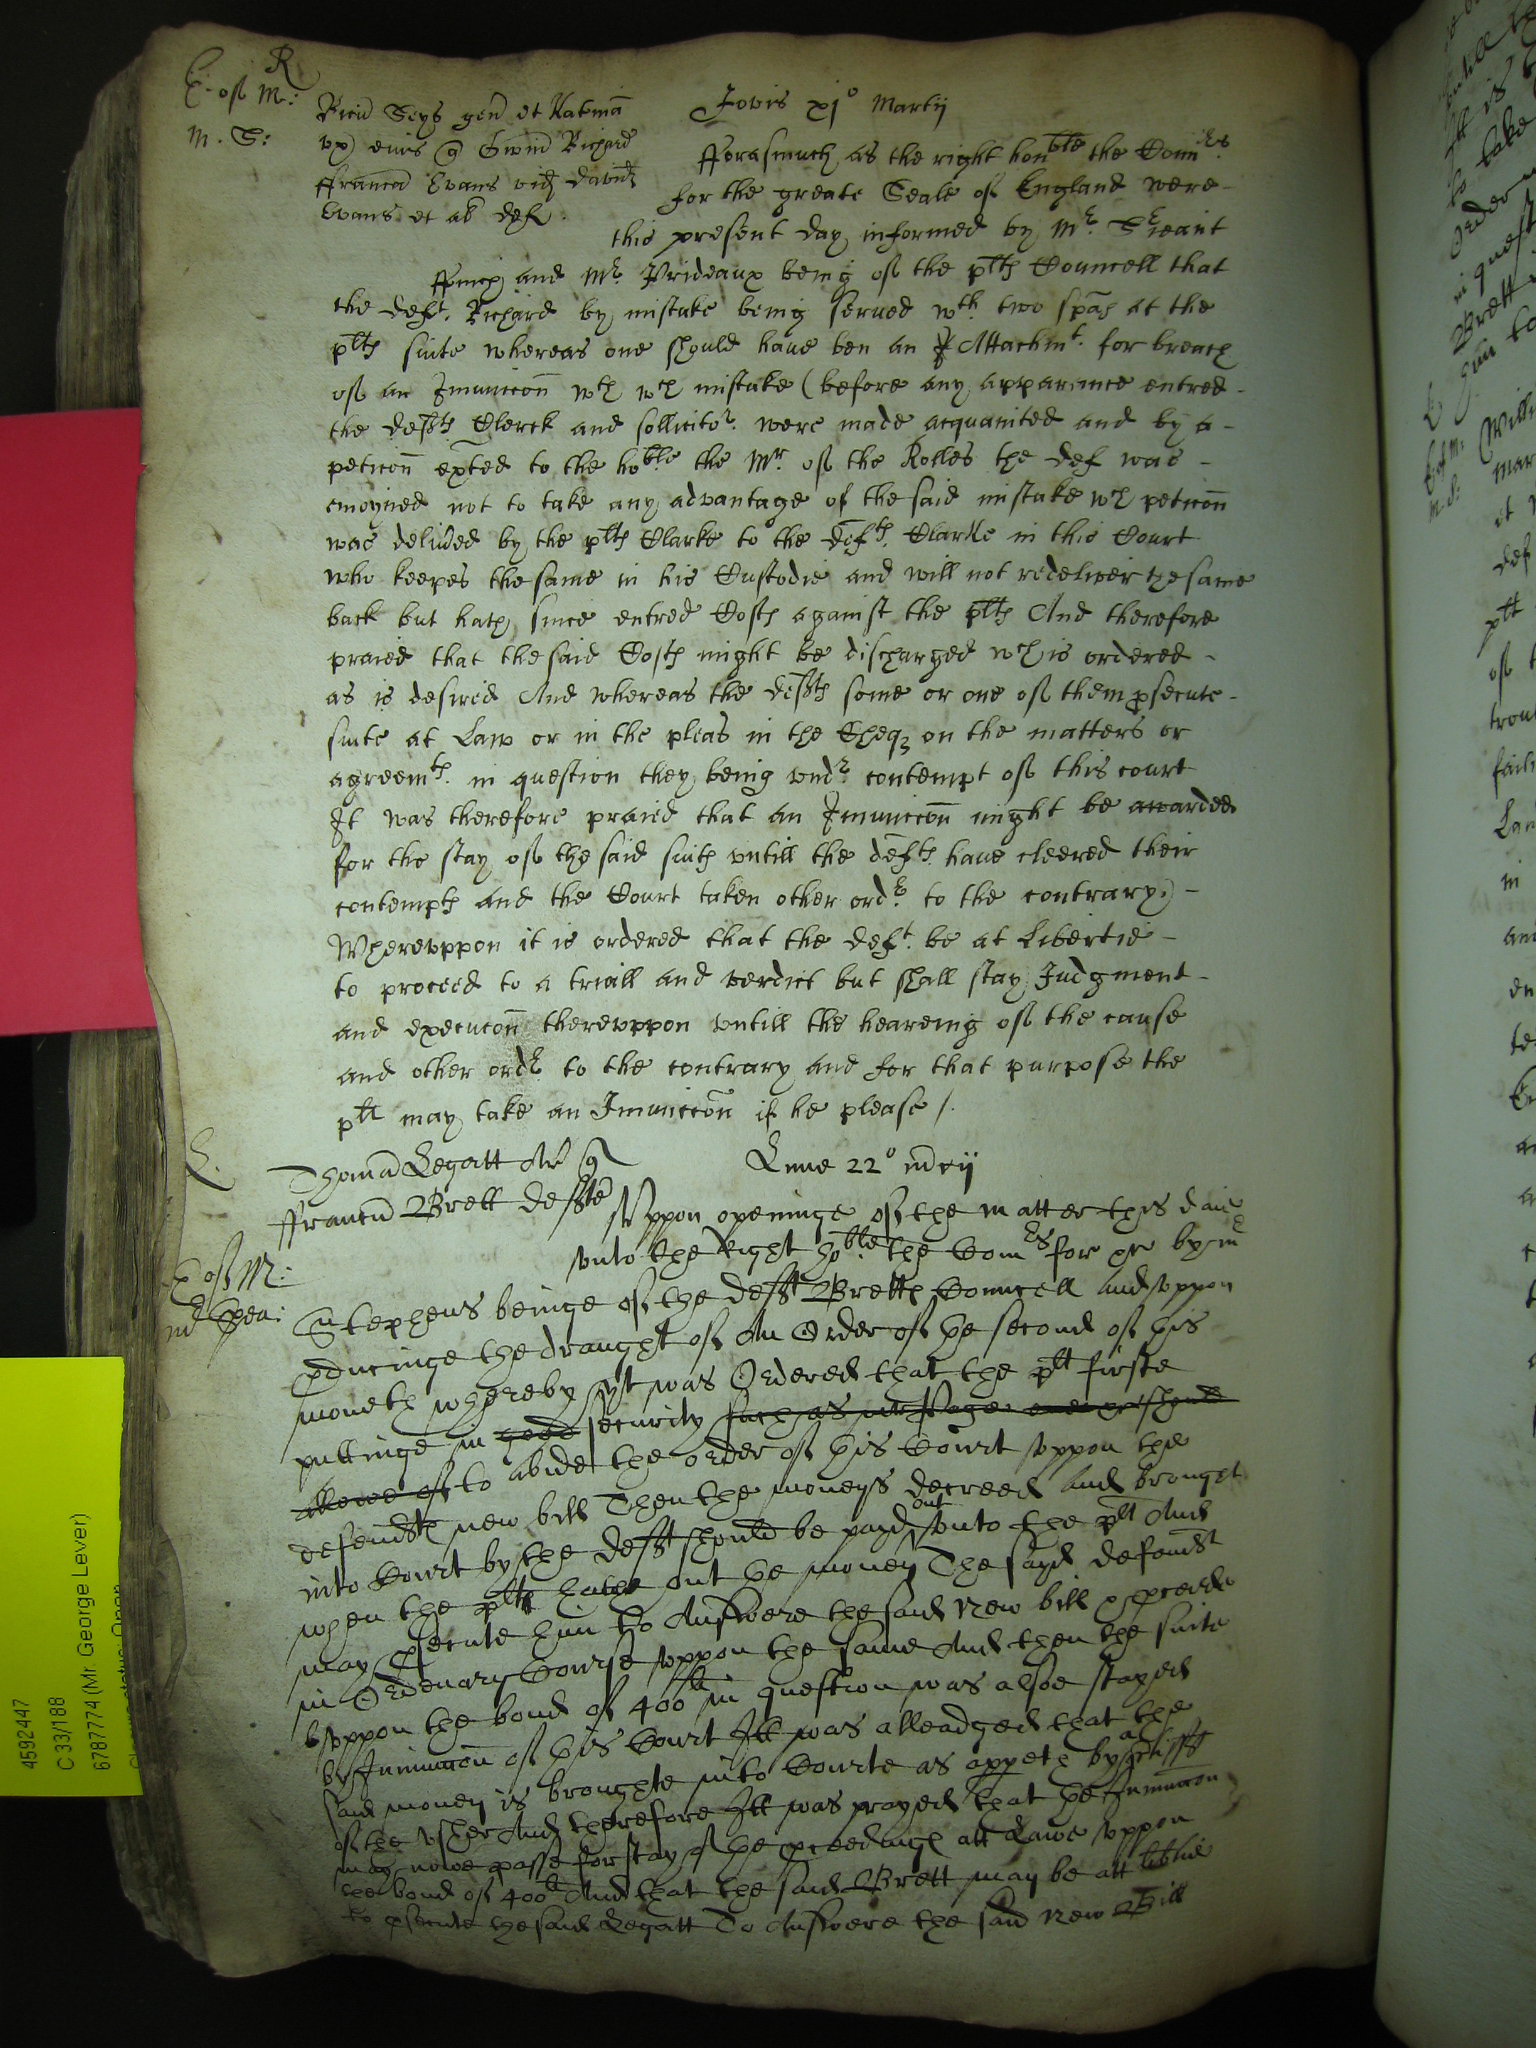 R
E. of M:
M. S:
Ricu Seys gen et Katrina
vx eius q Gwin Richard
ffranca Evans vid David
Evans et al def.
Jovis xj° Martij
fforasmuch as the right honble the Comrs.
for the greate Seale of England were
this present day informed by Mr. Sreant
ffinch and Mr. Prideaux being of the plts Councell that
the deft. Richard by mistake being served wth. two spas at the
plts suite whereas one should have ben an Attachmt. for breach
of an Iniunccon wch wch mistake (before any apparince entred
the defts Clerck and sollicitor. were made acquainted and by a
peticon exted to the hoble the Mr. of the Rolles the def was
enioyned not to take any advantage of the said mistake wch peticon
was deliued by the plts Clarke to the defts. Clarke in this Court
who keepes the same in his Custodie and will not redeliver the same
back but hath since entred Costs against the plts And therefore
praied that the said Costs might be discharged wch is ordered
as is desired And whereas the defts some or one of them psecute
suite at Law or in the pleas in the Chequ on the matters or
agreemts. in question they being vndr. contempt of this court
It was therefore praied that an Iniunccon might be awarded
for the stay of the said suits vntill the defts. have cleered their
contempts and the Court taken other ordr. to the contrary)
Wherevppon it is ordered that the deft. be at Libertie
to proceed to a triall and verdict but shall stay Iudgment
and execucon therevppon vntill the heareing of the cause
and other ordr. to the contrary and for that purpose the
plt may take an Iniunccon if he please /.
L.
E of M:
Thoma Legatt Ar q
ffrancu Brett defte
Lune 22° mrcij
Vppon openinge of the matter this daie
vnto the Right hoble the Comrs for &c by mr
Stephens beinge of the deft Bretts Councell and vppon
pducinge the draught of An Order of the second of this
moneth whereby yt was Ordered that the plt firste
puttinge in good security such as mr Page one &c should
allowe of to abide the order of this Court vppon the
defendts new bill Then the moneys decreed and brought
into Court by the deft should be payd out vnto the plt And
when the plte hathe out the money The sayd defendt
may psecute him to Answere the said new bill & pceede
in Ordenary Course vppon the same And then the suite
vppon the bond of 400li in question was alsoe stayed
by Iniunccon of this Court Itt was alleadged that the
said money is broughte into Courte as appeth by a ctifft
of the vsher And therefore Itt was prayed that the Iniunccon
may nowe passe for stay of the pceedings att Lawe vppon
the bond of 400li And that the said Brett may be att libtie
to psecute the said Legatt To Answere the said new Bill
4592447
C 33/188
6787774 (Mr. George Lever)